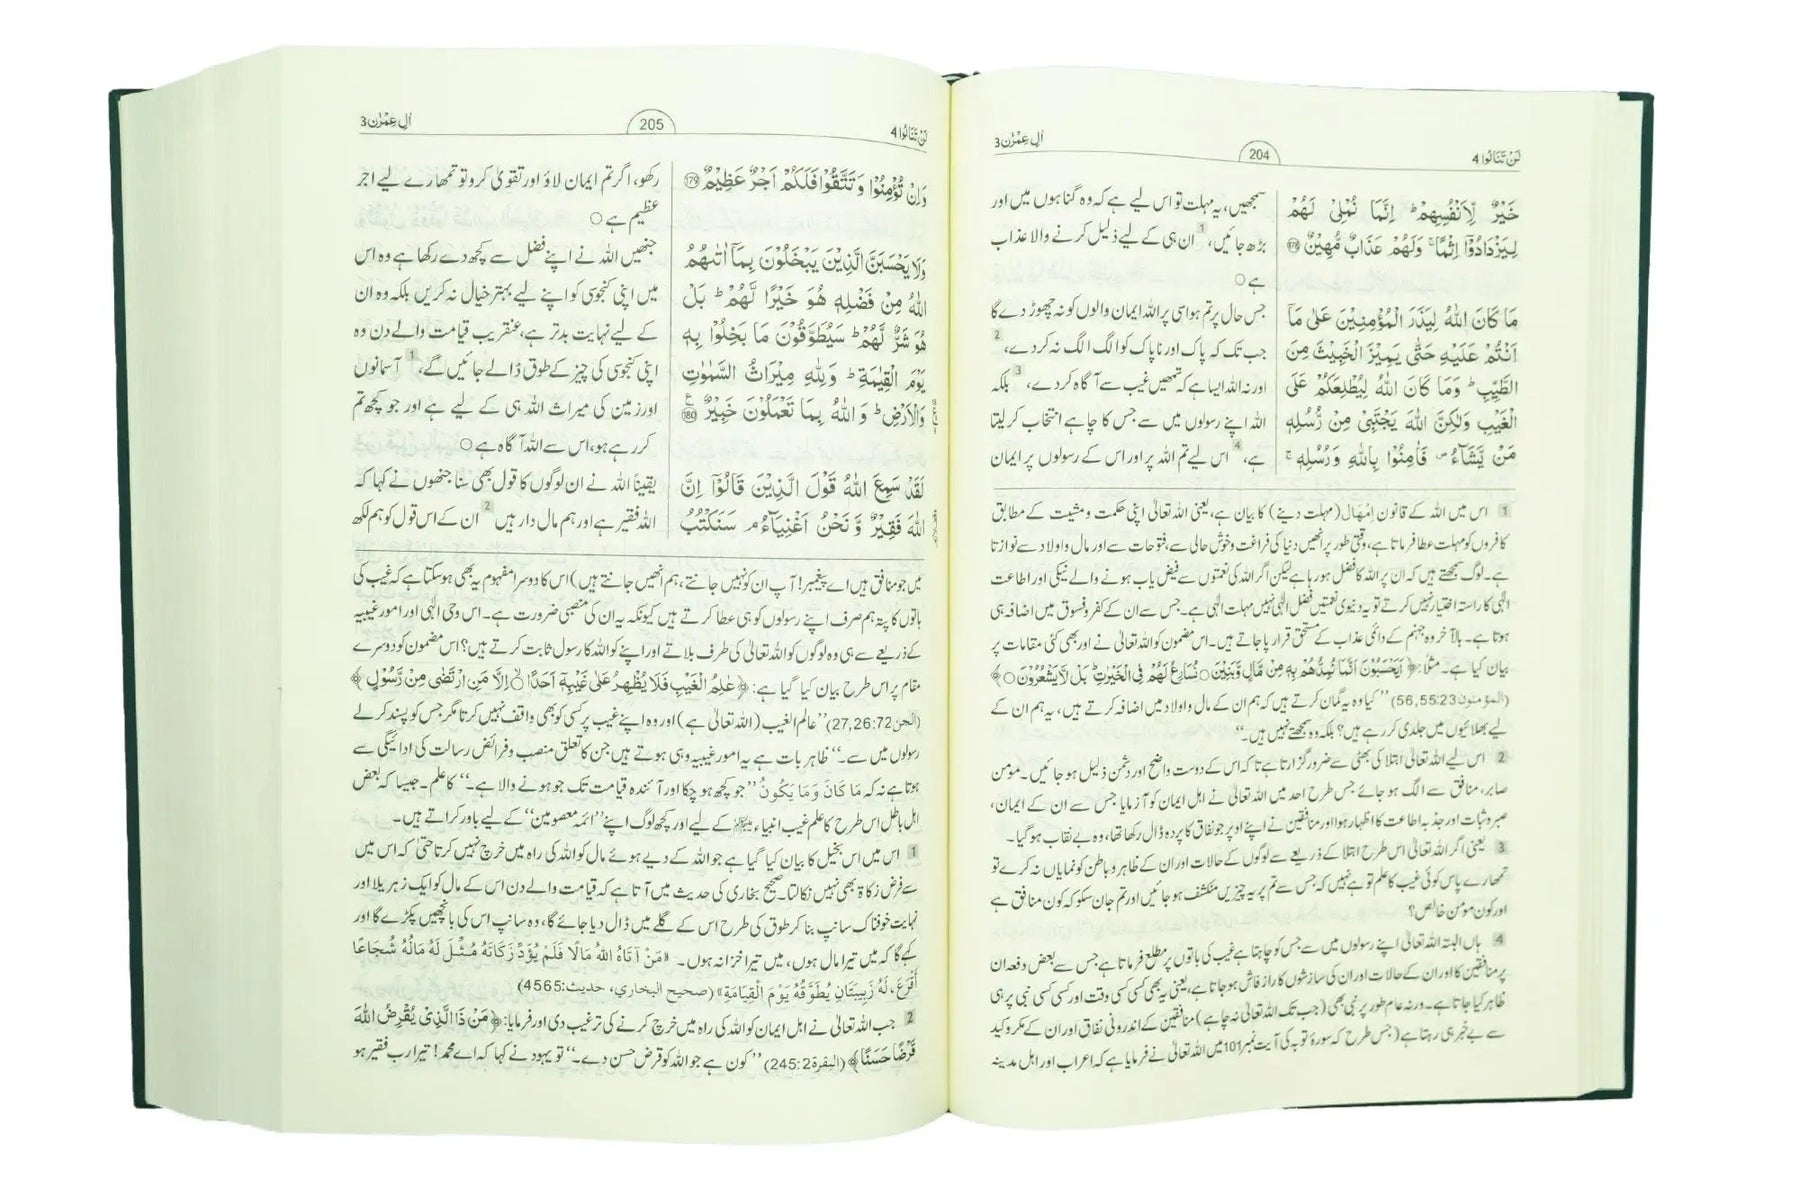 لَنْ تَنَالُوا 4
204
اٰلِ عِمْرٰن 3
خَيْرٌ لِّاَنْفُسِهِمْ ؕ اِنَّمَا نُمْلِيْ لَهُمْ
لِيَزْدَادُوْۤا اِثْمًا ۚ وَلَهُمْ عَذَابٌ مُّهِيْنٌ ۝178
مَا كَانَ اللّٰهُ لِيَذَرَ الْمُؤْمِنِيْنَ عَلٰى مَاۤ
اَنْتُمْ عَلَيْهِ حَتّٰى يَمِيْزَ الْخَبِيْثَ مِنَ
الطَّيِّبِ ؕ وَمَا كَانَ اللّٰهُ لِيُطْلِعَكُمْ عَلَى
الْغَيْبِ وَلٰكِنَّ اللّٰهَ يَجْتَبِيْ مِنْ رُّسُلِهٖ
مَنْ يَّشَآءُ ۪ فَاٰمِنُوْا بِاللّٰهِ وَرُسُلِهٖ ۚ
سمجھیں، یہ مہلت تو اس لیے ہے کہ وہ گناہوں میں اور
بڑھ جائیں، 1 ان ہی کے لیے ذلیل کرنے والا عذاب
ہے ○
جس حال پر تم ہو اسی پر اللہ ایمان والوں کو نہ چھوڑ دے گا
جب تک کہ پاک اور ناپاک کو الگ الگ نہ کر دے، 2
اور نہ اللہ ایسا ہے کہ تمھیں غیب سے آگاہ کر دے، 3 بلکہ
اللہ اپنے رسولوں میں سے جس کا چاہے انتخاب کر لیتا
ہے، 4 اس لیے تم اللہ پر اور اس کے رسولوں پر ایمان
1 اس میں اللہ کے قانون اِمْهَال (مہلت دینے) کا بیان ہے، یعنی اللہ تعالیٰ اپنی حکمت و مشیت کے مطابق
کافروں کو مہلت عطا فرماتا ہے، وقتی طور پر انھیں دنیا کی فراغت و خوش حالی سے، فتوحات سے اور مال و اولاد سے نوازتا
ہے۔ لوگ سمجھتے ہیں کہ ان پر اللہ کا فضل ہو رہا ہے لیکن اگر اللہ کی نعمتوں سے فیض یاب ہونے والے نیکی اور اطاعت
الٰہی کا راستہ اختیار نہیں کرتے تو یہ دنیوی نعمتیں فضل الٰہی نہیں مہلت الٰہی ہے۔ جس سے ان کے کفر و فسوق میں اضافہ ہی
ہوتا ہے۔ بالآخر وہ جہنم کے دائمی عذاب کے مستحق قرار پا جاتے ہیں۔ اس مضمون کو اللہ تعالیٰ نے اور بھی کئی مقامات پر
بیان کیا ہے۔ مثلاً: ﴿اَيَحْسَبُوْنَ اَنَّمَا نُمِدُّهُمْ بِهٖ مِنْ مَّالٍ وَّبَنِيْنَ ○ نُسَارِعُ لَهُمْ فِي الْخَيْرٰتِ ؕ بَلْ لَّا يَشْعُرُوْنَ ○﴾
(المؤمنون 56,55:23) ”کیا وہ یہ گمان کرتے ہیں کہ ہم ان کے مال و اولاد میں اضافہ کرتے ہیں، یہ ہم ان کے
لیے بھلائیوں میں جلدی کر رہے ہیں؟ بلکہ وہ سمجھتے نہیں ہیں۔“
2 اس لیے اللہ تعالیٰ ابتلا کی بھٹی سے ضرور گزارتا ہے تاکہ اس کے دوست واضح اور دشمن ذلیل ہو جائیں۔ مومن
صابر، منافق سے الگ ہو جائے جس طرح احد میں اللہ تعالیٰ نے اہل ایمان کو آزمایا جس سے ان کے ایمان،
صبر و ثبات اور جذبۂ اطاعت کا اظہار ہوا اور منافقین نے اپنے اوپر جو نفاق کا پردہ ڈال رکھا تھا، وہ بے نقاب ہو گیا۔
3 یعنی اگر اللہ تعالیٰ اس طرح ابتلا کے ذریعے سے لوگوں کے حالات اور ان کے ظاہر و باطن کو نمایاں نہ کرے تو
تمھارے پاس کوئی غیب کا علم تو ہے نہیں کہ جس سے تم پر یہ چیزیں منکشف ہو جائیں اور تم جان سکو کہ کون منافق ہے
اور کون مومن خالص؟
4 ہاں البتہ اللہ تعالیٰ اپنے رسولوں میں سے جس کو چاہتا ہے غیب کی باتوں پر مطلع فرماتا ہے جس سے بعض دفعہ ان
پر منافقین کا اور ان کے حالات اور ان کی سازشوں کا راز فاش ہو جاتا ہے، یعنی یہ بھی کسی کسی وقت اور کسی کسی نبی پر ہی
ظاہر کیا جاتا ہے۔ ورنہ عام طور پر نبی بھی (جب تک اللہ تعالیٰ نہ چاہے) منافقین کے اندرونی نفاق اور ان کے مکر و کید
سے بے خبر ہی رہتا ہے (جس طرح کہ سورۂ توبہ کی آیت نمبر 101 میں اللہ تعالیٰ نے فرمایا ہے کہ اعراب اور اہل مدینہ
لَنْ تَنَالُوا 4
205
اٰلِ عِمْرٰن 3
وَاِنْ تُؤْمِنُوْا وَتَتَّقُوْا فَلَكُمْ اَجْرٌ عَظِيْمٌ ۝179
وَلَا يَحْسَبَنَّ الَّذِيْنَ يَبْخَلُوْنَ بِمَاۤ اٰتٰىهُمُ
اللّٰهُ مِنْ فَضْلِهٖ هُوَ خَيْرًا لَّهُمْ ؕ بَلْ
هُوَ شَرٌّ لَّهُمْ ؕ سَيُطَوَّقُوْنَ مَا بَخِلُوْا بِهٖ
يَوْمَ الْقِيٰمَةِ ؕ وَلِلّٰهِ مِيْرَاثُ السَّمٰوٰتِ
وَالْاَرْضِ ؕ وَاللّٰهُ بِمَا تَعْمَلُوْنَ خَبِيْرٌ ۝180
لَقَدْ سَمِعَ اللّٰهُ قَوْلَ الَّذِيْنَ قَالُوْۤا اِنَّ
اللّٰهَ فَقِيْرٌ وَّنَحْنُ اَغْنِيَآءُ ۘ سَنَكْتُبُ
رکھو، اگر تم ایمان لاؤ اور تقویٰ کرو تو تمھارے لیے اجر
عظیم ہے ○
جنھیں اللہ نے اپنے فضل سے کچھ دے رکھا ہے وہ اس
میں اپنی کنجوسی کو اپنے لیے بہتر خیال نہ کریں بلکہ وہ ان
کے لیے نہایت بدتر ہے، عنقریب قیامت والے دن وہ
اپنی کنجوسی کی چیز کے طوق ڈالے جائیں گے، 1 آسمانوں
اور زمین کی میراث اللہ ہی کے لیے ہے اور جو کچھ تم
کر رہے ہو، اس سے اللہ آگاہ ہے ○
یقیناً اللہ نے ان لوگوں کا قول بھی سنا جنھوں نے کہا کہ
اللہ فقیر ہے اور ہم مال دار ہیں 2 ان کے اس قول کو ہم لکھ
میں جو منافق ہیں اے پیغمبر! آپ ان کو نہیں جانتے، ہم انھیں جانتے ہیں) اس کا دوسرا مفہوم یہ بھی ہو سکتا ہے کہ غیب کی
باتوں کا پتہ ہم صرف اپنے رسولوں کو ہی عطا کرتے ہیں کیونکہ یہ ان کی منصبی ضرورت ہے۔ اس وحی الٰہی اور امور غیبیہ
کے ذریعے سے ہی وہ لوگوں کو اللہ تعالیٰ کی طرف بلاتے اور اپنے کو اللہ کا رسول ثابت کرتے ہیں؟ اس مضمون کو دوسرے
مقام پر اس طرح بیان کیا گیا ہے: ﴿عٰلِمُ الْغَيْبِ فَلَا يُظْهِرُ عَلٰى غَيْبِهٖۤ اَحَدًا ○ اِلَّا مَنِ ارْتَضٰى مِنْ رَّسُوْلٍ﴾
(الجن 27,26:72) ”عالم الغیب (اللہ تعالیٰ ہے) اور وہ اپنے غیب پر کسی کو بھی واقف نہیں کرتا مگر جس کو پسند کر لے
رسولوں میں سے۔“ ظاہر بات ہے یہ امور غیبیہ وہی ہوتے ہیں جن کا تعلق منصب و فرائض رسالت کی ادائیگی سے
ہوتا ہے نہ کہ مَا كَانَ وَمَا يَكُونُ ”جو کچھ ہو چکا اور آئندہ قیامت تک جو ہونے والا ہے۔“ کا علم۔ جیسا کہ بعض
اہل باطل اس طرح کا علم غیب انبیاء ﷺ کے لیے اور کچھ لوگ اپنے ”ائمہ معصومین“ کے لیے باور کراتے ہیں۔
1 اس میں اس بخیل کا بیان کیا گیا ہے جو اللہ کے دیے ہوئے مال کو اللہ کی راہ میں خرچ نہیں کرتا حتیٰ کہ اس میں
سے فرض زکاۃ بھی نہیں نکالتا۔ صحیح بخاری کی حدیث میں آتا ہے کہ قیامت والے دن اس کے مال کو ایک زہریلا اور
نہایت خوفناک سانپ بنا کر طوق کی طرح اس کے گلے میں ڈال دیا جائے گا، وہ سانپ اس کی بانچھیں پکڑے گا اور
کہے گا کہ میں تیرا مال ہوں، میں تیرا خزانہ ہوں۔ «مَنْ آتَاهُ اللهُ مَالًا فَلَمْ يُؤَدِّ زَكَاتَهُ مُثِّلَ لَهُ مَالُهُ شُجَاعًا
أَقْرَعَ، لَهُ زَبِيبَتَانِ يُطَوَّقُهُ يَوْمَ الْقِيَامَةِ» (صحيح البخاري، حديث: 4565)
2 جب اللہ تعالیٰ نے اہل ایمان کو اللہ کی راہ میں خرچ کرنے کی ترغیب دی اور فرمایا: ﴿مَنْ ذَا الَّذِيْ يُقْرِضُ اللّٰهَ
قَرْضًا حَسَنًا﴾ (البقرة 245:2) ”کون ہے جو اللہ کو قرض حسن دے۔“ تو یہود نے کہا کہ اے محمد! تیرا رب فقیر ہو